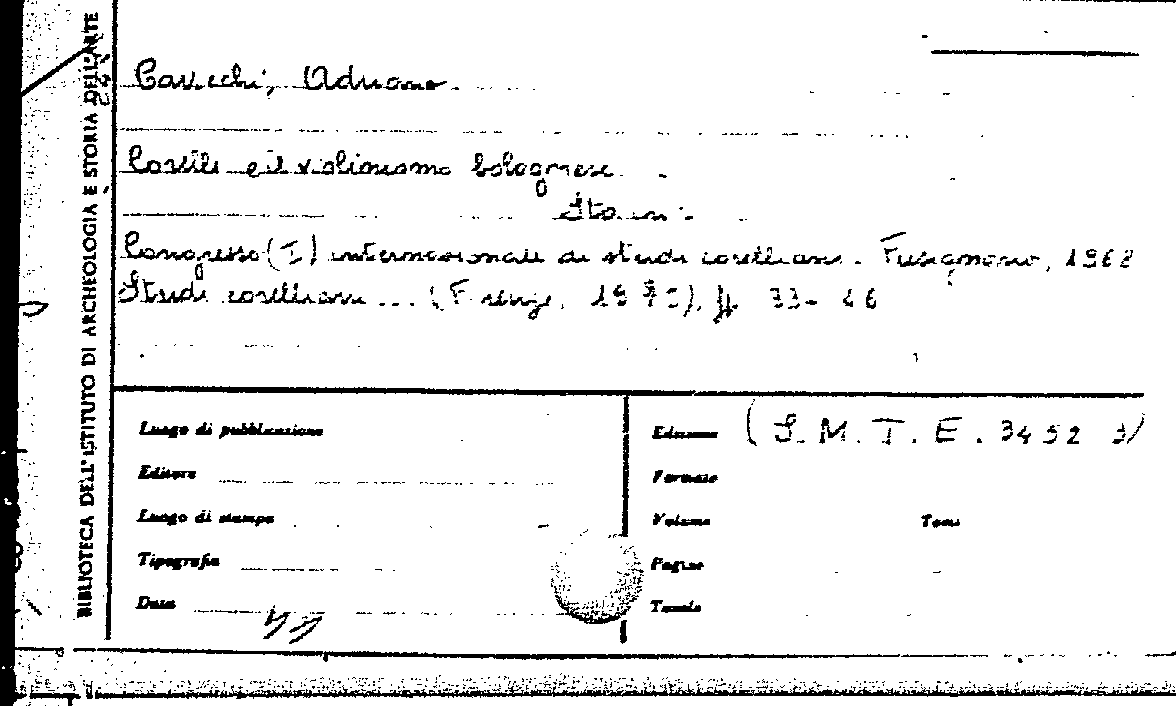 BIBLIOTECA DELL'ISTITUTO DI ARCHEOLOGIA E STORIA DELL'ARTE
Cavicchi, Adriano
Corelli e il violinismo bolognese
Congresso (I) internazionale di studi corelliani. Fusignano, 1968
Studi corelliani ... (Firenze, 1972), pp. 33-46
Luogo di pubblicazione
Editore
Luogo di stampa
Tipografia
Data
Edizione (S.M.T.E. 3452
Formato
Volume Tomi
Pagine
Tavole